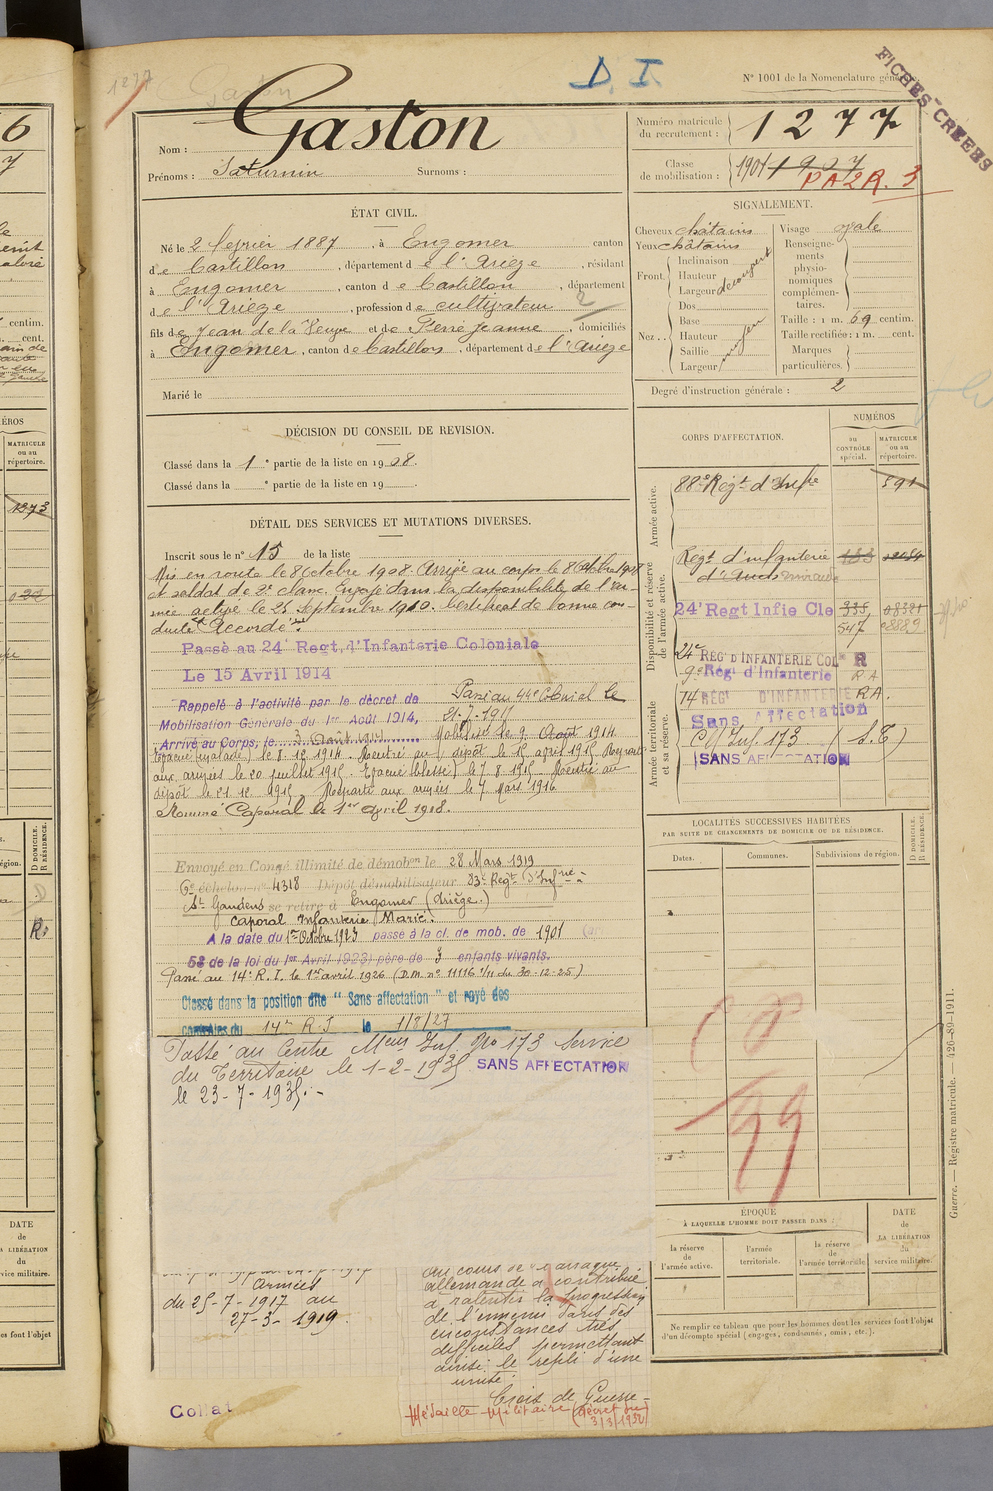 D. I.
N° 1001 de la Nomenclature
FICHES CRÉÉES
1277
Gaston
Nom : Gaston
Prénoms : Saturnin Surnoms :
Numéro matricule du recrutement : 1277
Classe de mobilisation : 1901 1907
PA2R. 3
ÉTAT CIVIL.
Né le 2 février 1887, à Engomer canton
de Castillon, département de l'Ariège, résidant
à Engomer, canton de Castillon, département
de l'Ariège, profession de cultivateur
2
fils de Jean de la Veuve et de Pierre Jeanne, domiciliés
à Engomer, canton de Castillon, département de l'Ariège
Marié le
SIGNALEMENT.
Cheveux châtains
Yeux châtains
Front. Inclinaison
Hauteur
Largeur découvert
Nez.. Dos
Base
Hauteur
Saillie
Largeur moyen
Visage ovale
Renseignements physionomiques complémentaires.
Taille : 1 m. 69 centim.
Taille rectifiée : 1 m. cent.
Marques particulières.
Degré d'instruction générale : 2
DÉCISION DU CONSEIL DE REVISION.
Classé dans la 1e partie de la liste en 1908.
Classé dans la e partie de la liste en 19
DÉTAIL DES SERVICES ET MUTATIONS DIVERSES.
Inscrit sous le n° 15 de la liste
Mis en route le 8 Octobre 1908. Arrivé au corps le 8 Octobre 1908
et soldat de 2e classe. Envoyé dans la disponibilité de l'ar-
mée active le 25 Septembre 1910. Certificat de bonne con-
duite Accordé.
Passé au 24e Regt. d'Infanterie Coloniale
Le 15 Avril 1914
Rappelé à l'activité par le décret de
Mobilisation Générale du 1er Août 1914,
Arrivé au Corps, le 3 Août 1914
Passé au 44e Colonial le
21-7-1915
Mobilisé le 9 Août 1914
Evacué (malade) le 8.12.1914. Rentré au dépôt le 15 avril 1915 Reparti
aux armées le 20 juillet 1915. Evacué (blessé) le 7.8.1915. Rentré au
dépôt le 21.12.1915. Reparti aux armées le 7 Mars 1916
Nommé Caporal le 1er avril 1918.
Envoyé en Congé illimité de démobon le 28 Mars 1919
6e échelon n° 4318 Dépôt démobilisateur 83e Regt d'Infrie
St Gaudens se retire à Engomer (Ariège.)
Caporal Infanterie Marié.
A la date du 1er Octobre 1923 passé à la cl. de mob. de 1901
58 de la loi du 1er Avril 1923) père de 3 enfants vivants.
Passé au 14e R.I. le 1er avril 1926 (D.M. n° 11116 1/11 du 30-12-25)
Classé dans la position dite "Sans affectation" et rayé des
contrôles du 14e R I le 1/8/27
Passé au Centre Mens Inf. No 173 Service
du Territoire le 1-2-1935 SANS AFFECTATION
le 23-7-1935.-
Armées
du 25-7-1917 au
27-3-1919.
au cours de
allemande a contribué
à ralentir la progression
de l'ennemi dans des
circonstances très
difficiles permettant
ainsi le repli d'une
unité.
Croix de Guerre
Médaille Militaire (décret du
3/3/1932)
Collat
CORPS D'AFFECTATION.
NUMÉROS
au CONTRÔLE spécial.
MATRICULE ou au répertoire.
Armée active.
88e Régt d'Infie 591
Disponibilité et réserve de l'armée active.
Régt d'infanterie
24e Regt Infie Cle 335 08321
547 08889
24e REGt D'INFANTERIE COLe R
9e Reg d'Infanterie RA
Armée territoriale et sa réserve.
14 REGt D'INFANTERIE RA.
Sans Affectation
CM Inf. 173 (S.T)
SANS AFFECTATION
LOCALITÉS SUCCESSIVES HABITÉES
PAR SUITE DE CHANGEMENTS DE DOMICILE OU DE RÉSIDENCE.
Dates. Communes. Subdivisions de région.
D DOMICILE. R RÉSIDENCE.
39
ÉPOQUE
À LAQUELLE L'HOMME DOIT PASSER DANS :
la réserve de l'armée active.
l'armée territoriale.
la réserve de l'armée territoriale.
DATE de LA LIBÉRATION du service militaire.
Ne remplir ce tableau que pour les hommes dont les services font l'objet
d'un décompte spécial (engagés, condamnés, omis, etc.).
Guerre. — Registre matricule. — 426-89-1911.
6
7
centim.
cent.
MATRICULE ou au répertoire.
1973
D DOMICILE. R RÉSIDENCE.
R.
DATE
de
LA LIBÉRATION
du
service militaire.